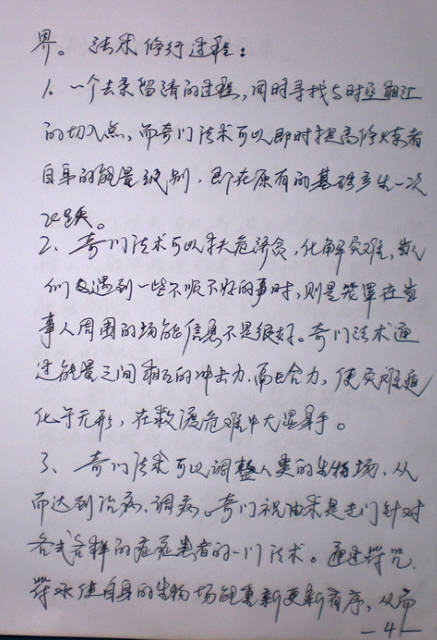 界。法术修行过程：
1、一个去杂留清的过程，同时寻找与时空相汇
的切入点，而奇门法术可以即时提高修炼者
自身的能量级别，即在原有的基础产生一次
飞跃。
2、奇门法术可以扶危济贫，化解灾难，当人
们遇到一些不顺不好的事时，则是笼罩在当
事人周围的场能信息不是很好。奇门法术通
过能量之间相互的冲击力和合力，使灾难通
化于无形，在救渡危难中大显身手。
3、奇门法术可以调整人类的生物场，从
而达到治病、调病。奇门祝由术是专门针对
各式各样的症症患者的一门法术。通过符咒、
符水使自身的生物场能重新更新有序，从而
—4—